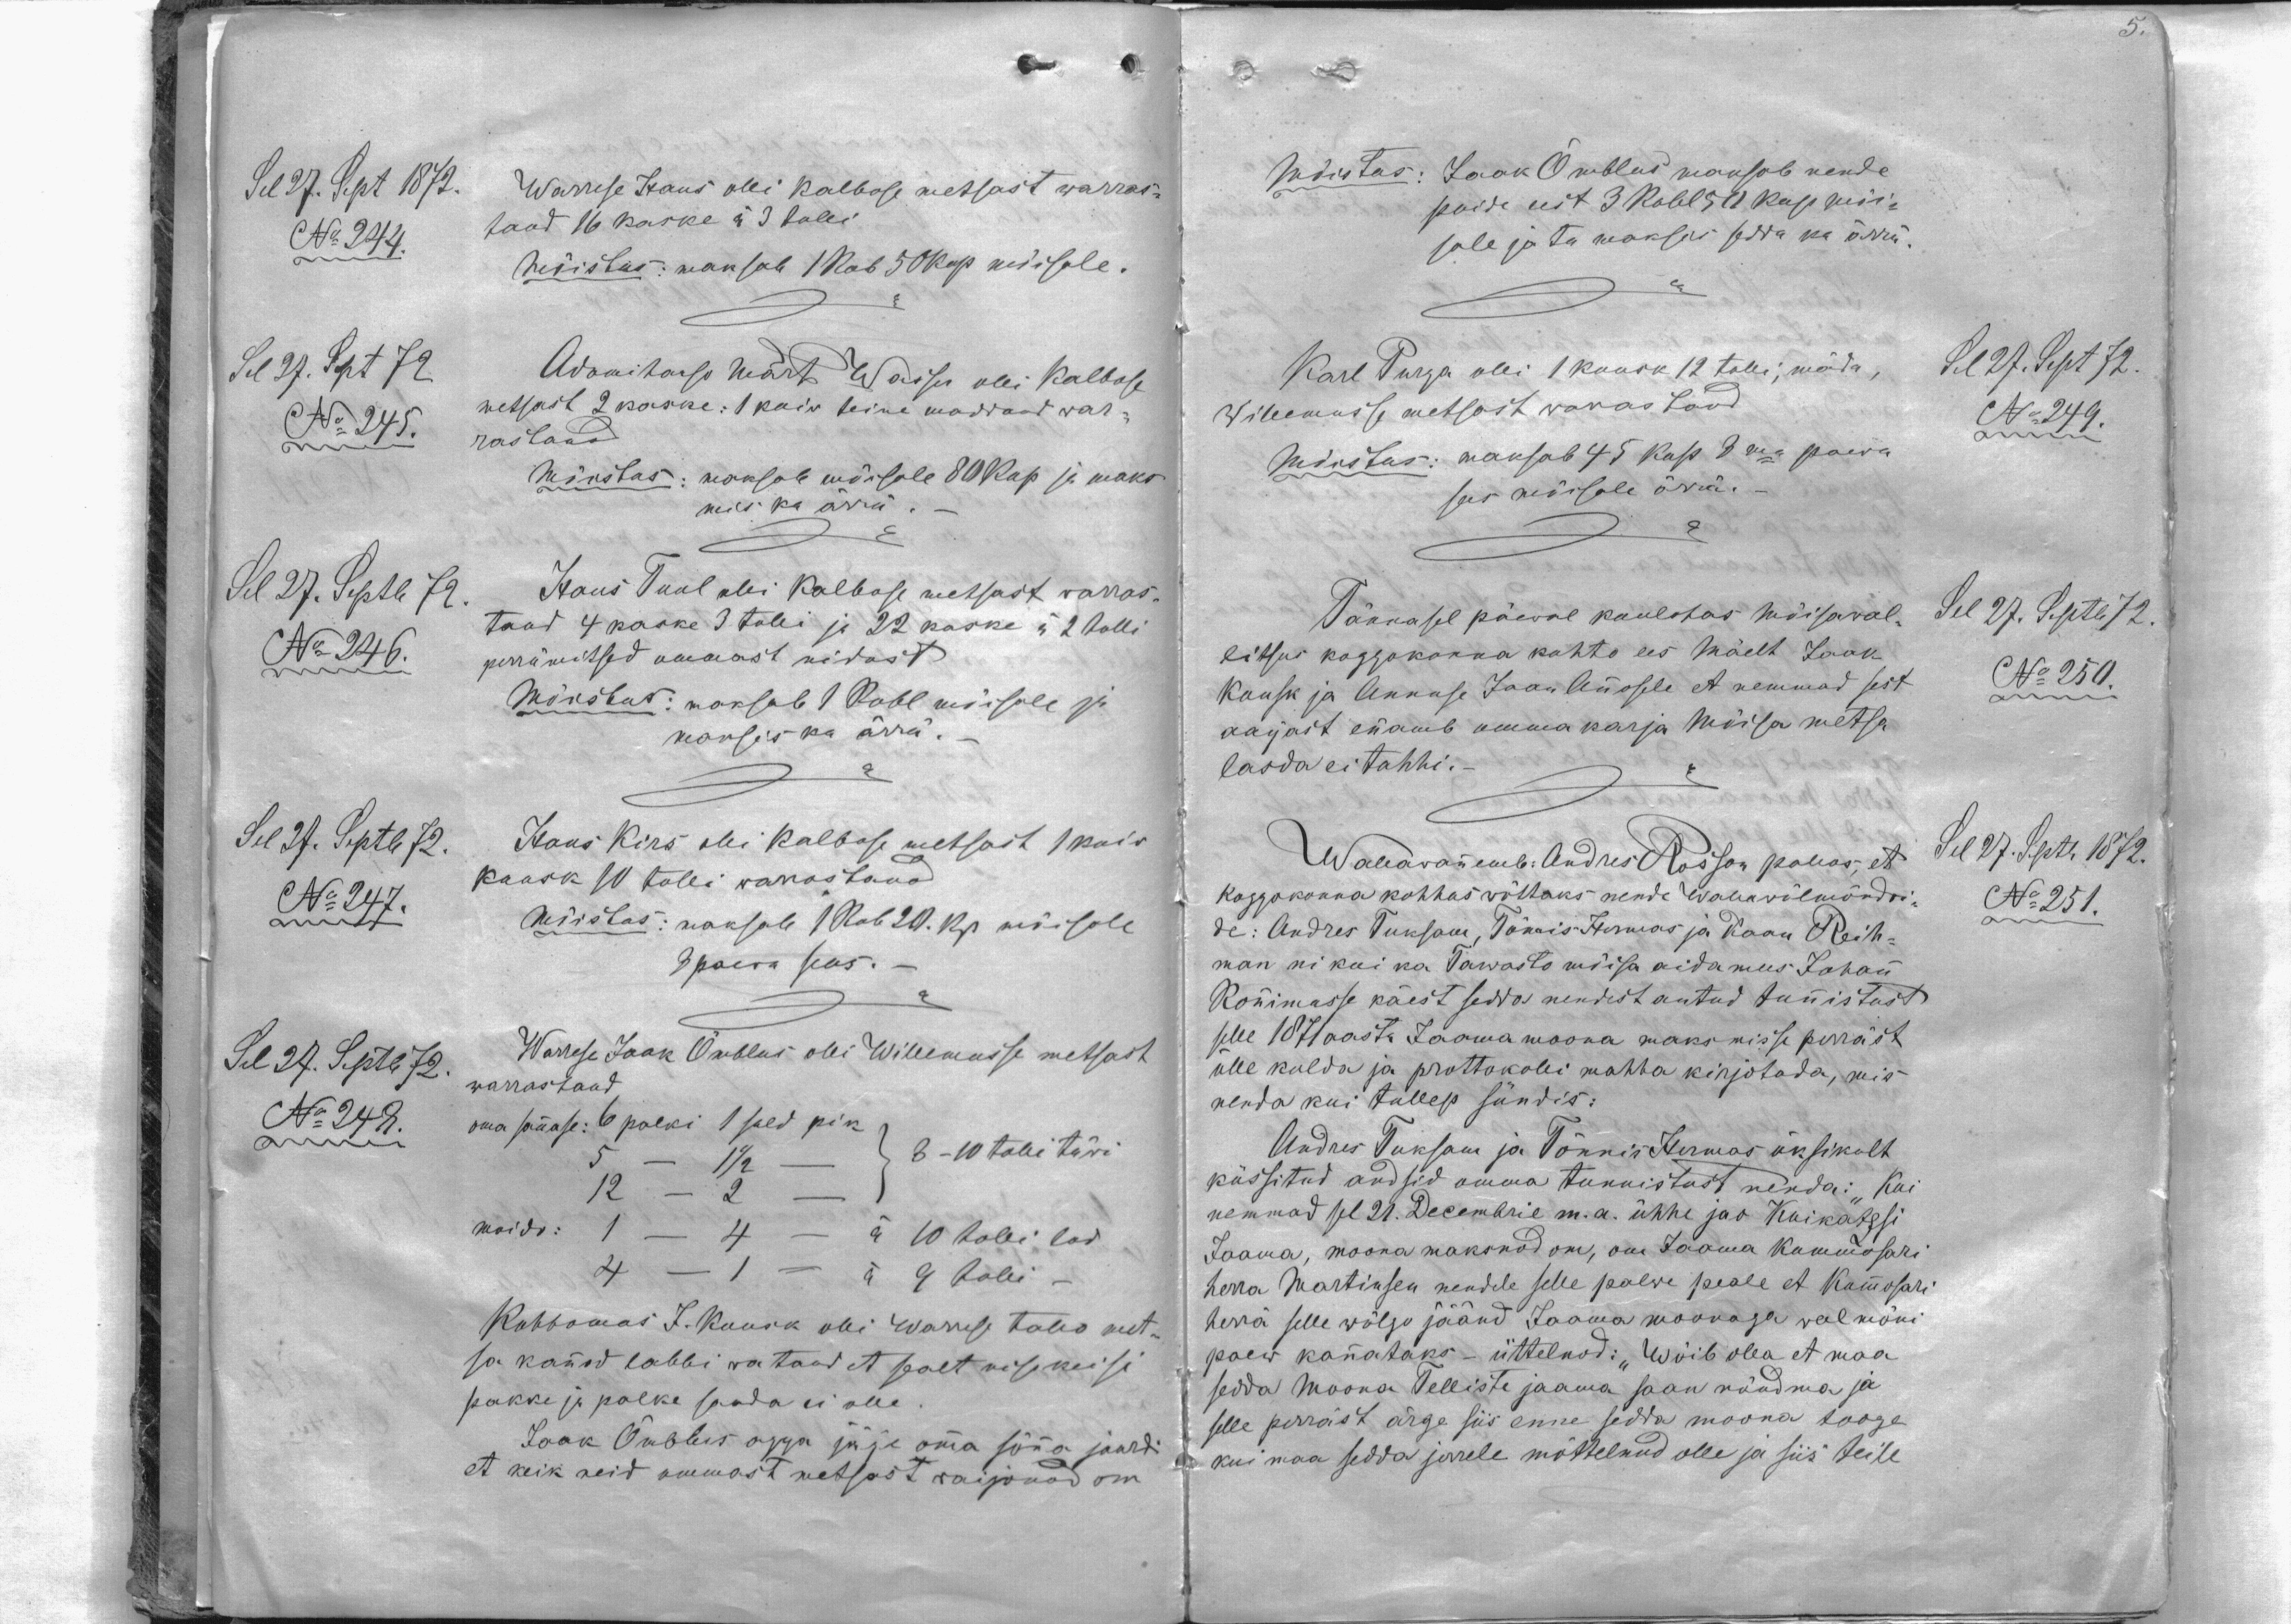 Sel 27. Sept 1872.
No 244.
Warrese Hans olli Kalbose metsast warras-
tand 16 kaske à 3 tolli
Mõistus: maksab 1 Rub 50 Kop mõisale.
Sel 27. Sept 72
No 245.
Adamihanso Märt Wasser olli Kalbose
metsast 2 kaske: 1 kuiw teine maddand war-
rastand
Mõistus: maksab mõisale 80 Kop ja maks
mis ka ärrä. —
Sel 27. Septb 72.
No 246.
Hans Tuul olli Kalbose metsast warras-
tand 4 kaske 3 tolli ja 22 kaske à 2 tolli
perrämitsed ommast nidust
Mõistus: maksab 1 Rubl mõisale ja
maksis ka ärrä. —
Sel 27. Septb 72.
No 247.
Hans Kirs olli Kalbose metsast 1 kuiw
kuusk 10 tolli warrastand
Mõistus: maksab 1 Rub 20. Kp mõisale
8 paewa seas. —
Sel 27. Septb 72.
No 248.
Warrese Jaak Õmblus olli Willemusse metsast
warrastand
oma sannase: 6 palki 1 süld pik
5 — 1½ —
12 — 2 —
8 - 10 tolli tüwi
maido: 1 — 4 — à 10 tolli lad
4 — 1 — à 9 tolli —
Kohtomas J. Kuusk olli Warrese tallo met-
sa kannod labbi watand et sealt niisukeisi
pakke ja palke saada ei olle.
Jaak Õmblus agga jäije oma sõnna juurde
et keik neid ommast metsast raijonud om
5.
Mõistus: Jaak Õmblus maksab nende
puide eest 3 Rubl 50 Kop mõi-
sale ja ta maksis sedda ka ärrä.
Karl Purga olli 1 kuusk 12 tolli, mäda,
Willemusse metsast warrastand
Mõistus: maksab 45 Kop 8 ma paewa
sees mõisale ärrä. —
Sel 27. Sept 72.
No 249.
Tännasel päewal kuulotas Mõisawal-
litsus koggokonna kohto ees Mäelt Jaak
Kuusk ja Annuse Jaan Annosele et nemmad sest
aajast ennamb omma karja Mõisa metsa
lasda ei tohhi. —
Sel 27. Septb 72.
No 250.
Wallawannemb: Andres Rosson pallos, et
koggokonna kohhus wõttaks nende Wallawölmöndri-
de: Andres Tuksam, Tõnnis Hermas ja Kaan Reih-
man ni kui ka Tawasto mõisa aidamees Johann
Ronnimusse käest sedda nendest antud tunnistust
selle 1871 aasta Jaama moona maksmisse perräst
ülle kulda ja prottokolli mahha kirjotada, mis
nenda kui tullep sündis:
Sel 27. Septb 1872.
No 251.
Andres Tuksam ja Tõnnis Hermas üksikult
küssitud andsid omma tunnistust nenda: „Kui
nemmad sel 21. Decembrie m. a. ühhe jao Kuikatsi
Jaama, moona maksnod om, om Jaama Kommosari
herra Martinsen nendele selle palwe peale et Kommosari
herrä selle wõlgo jäänd Jaama moonaga weel mõni
paew kannataks — üttelnod: „Wõib olla et maa
sedda Moona Telliste jaama saan nõudma ja
selle perräst ärge siis enne sedda moona tooge
kui maa sedda jerrele mõttelnud olle ja siis teile